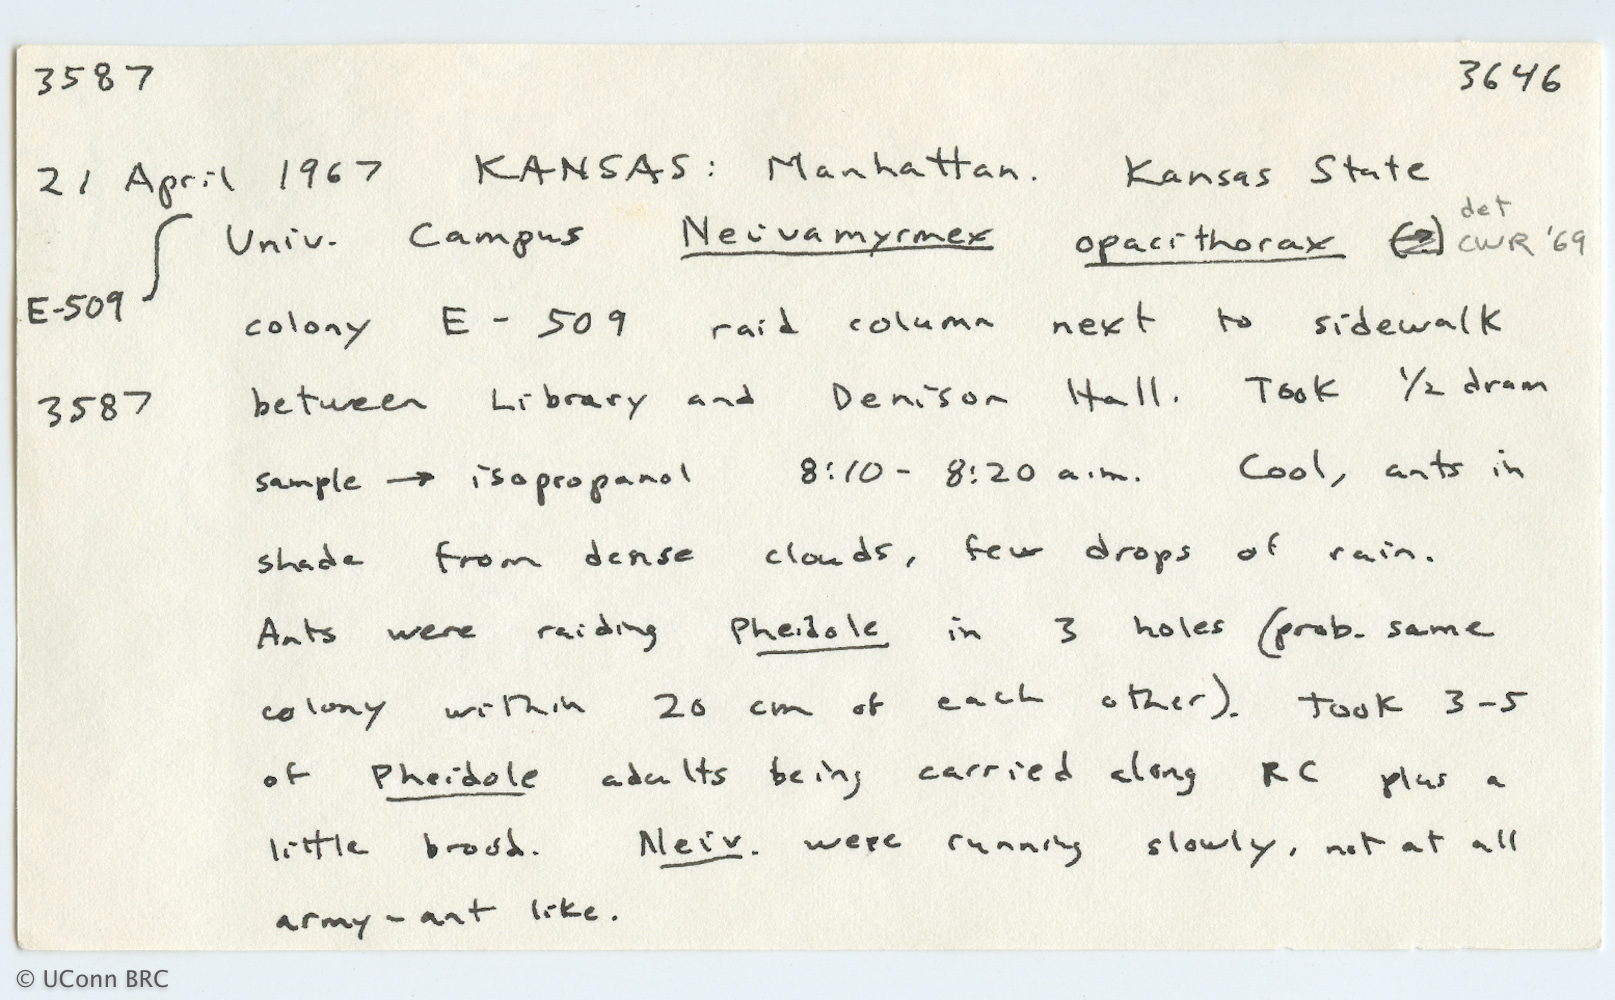 3587 3646
21 April 1967 KANSAS: Manhattan. Kansas State
Univ. Campus Neivamyrmex opacithorax det CWR '69
E-509
colony E-509 raid column next to sidewalk
3587 between Library and Denison Hall. Took 1/2 dram
sample → isopropanol 8:10 - 8:20 a.m. Cool, ants in
shade from dense clouds, few drops of rain.
Ants were raiding Pheidole in 3 holes (prob. same
colony within 20 cm of each other). Took 3-5
of Pheidole adults being carried along RC plus a
little brood. Neiv. were running slowly, not at all
army-ant like.
© UConn BRC